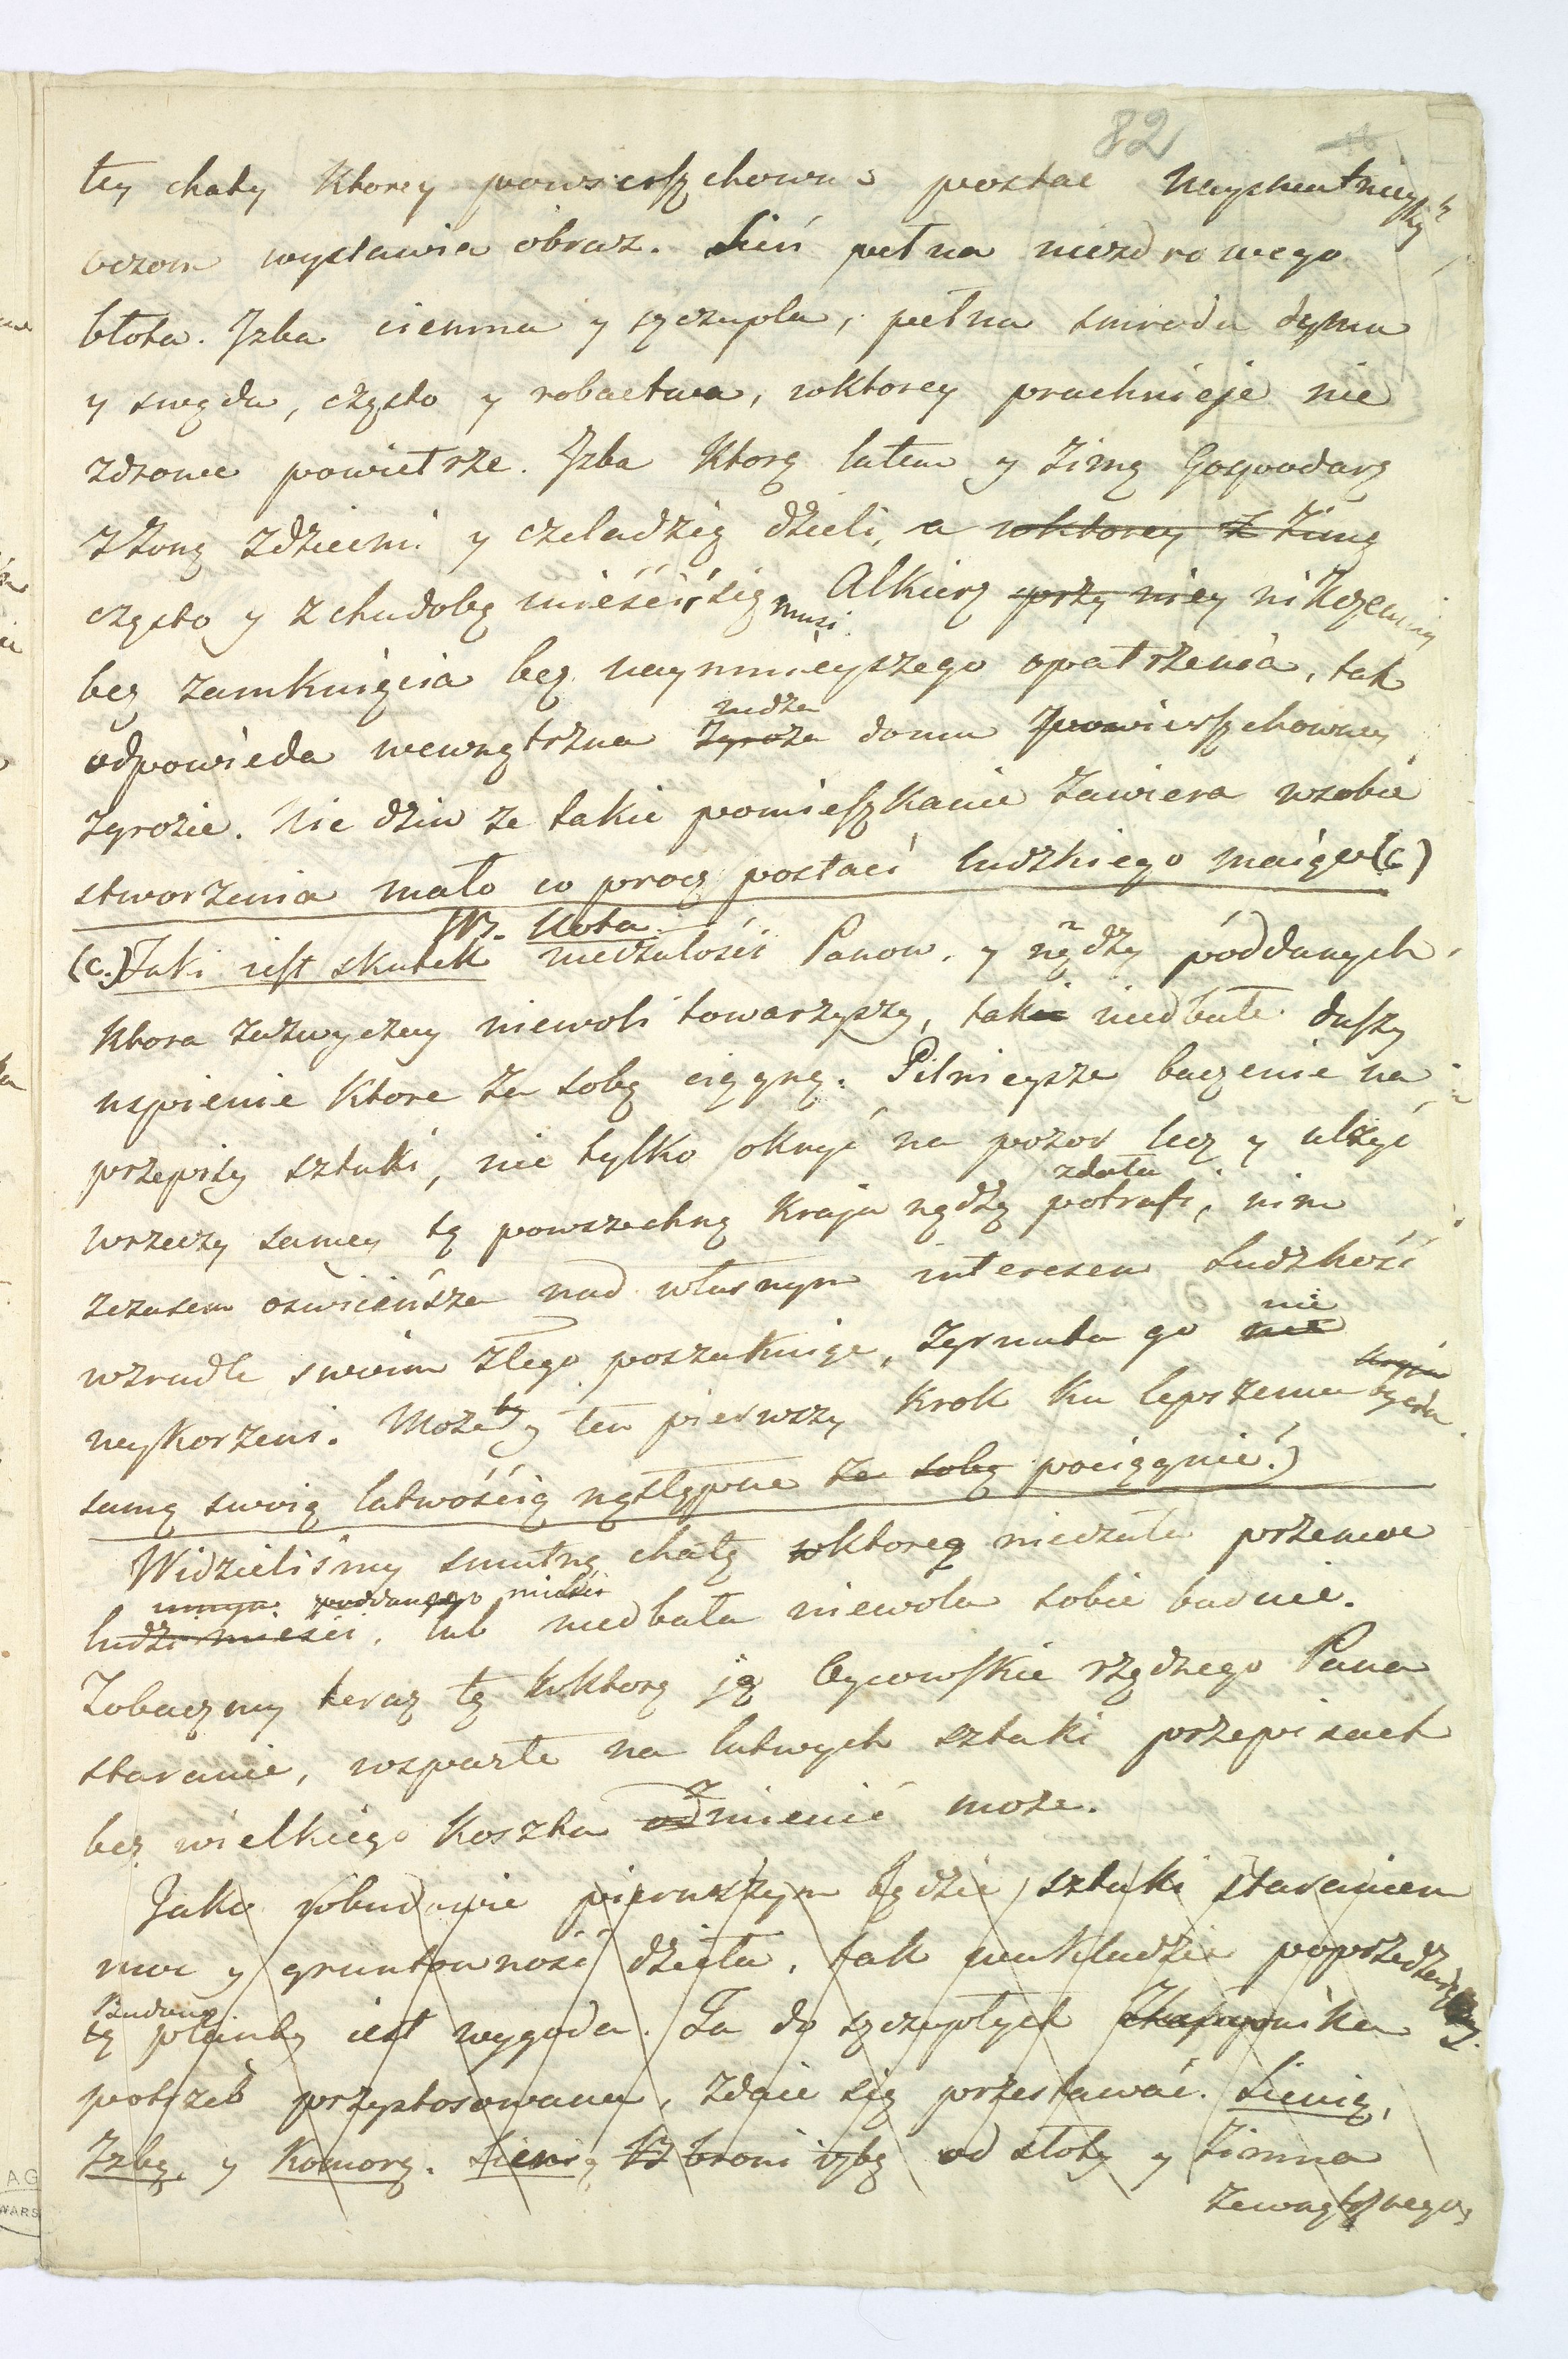 82
tey chaty Ktorey powierszchowna postać nayskutnieyszy
oczom wystawia obraz. Sień pełna niezdrowego
błota. Jzba ciemna y szczupła, pełna smrodu dymu
y swędu, często y robactwa, wktorey pruchnieje nie
zdrowe powietrze. Jzba Ktorą latem y Zimą Gospodarz
z Żoną zdziećmi y czeladzią dzieli, a wktorey Z Zimą
często y z chudobą mieścić się musi. Alkierz przy niey nikczemny
bez zamknięcia bez naymnieyszego opatrzenia, tak
nędza
odpowieda wewnętrzna Zgroza domu Zpowierszchowney
zgrozie. Nie dziw ze takie pomieszkanie zawiera wsobie
stworzenia mało co procz postaci ludzkiego maiące (c)
W. Nota.
(c.) Jaki iest skutek niedzałości Panow, y nędzy póddanych,
Ktora zazwyczay niewoli towarzyszy, takie niedbałe duszy
uspienie Ktore za sobą ciągną. Pilnieysze baczenie na
przepisy sztuki, nie tylko okryć na pozor lecz y ulżyć
zdała
wrzeczy samey tę powszechną Kraju nędzę potrafi, nim
zczasem oswieceńsza nad własnym interesem Ludzkość
wzrudle swoim złego poszukuiąc, zgruntu go nie
nie
wykorzeni. Może by ten pierwszy Krok ku lepszemu bycia
samą swoią łatwością następne za sobą pociągnie.)
Widzieliśmy smutną chatę wktoreą niedzała przemoc
poddanego mieści
ludzi mieści, lub niedbała niewola sobie buduie.
Zobaczmy teraz tę wktorą ją Oycowskie rządnego Pana
staranie, wsparte na łatwych sztuki przepisach
bez wielkiego Kosztu odzmienić może.
Jako wbudowie pierwszym będzie sztuki staraniem
moc y gruntowność dzieła, tak wukładzie poprzedzaiącey
Budowę
tę plantę iest wygoda. Ta do szczupłych
potrzeb przystosowana, zdaie się przestawać. Sienią,
Jzbę, y Komorę. Sienią broni izbę od słoty y zimna
zewnątrznego,